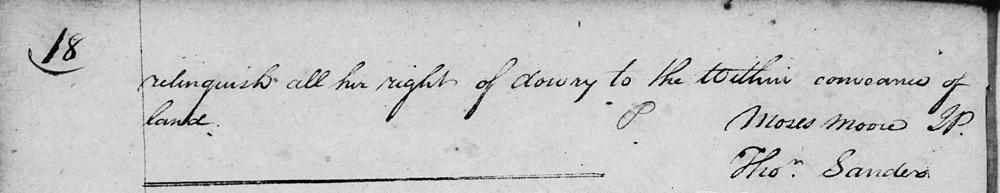 18
relinquish all her right of dowry to the Within conveance of
land. P Moses Moore JP.
Thos. Sanders